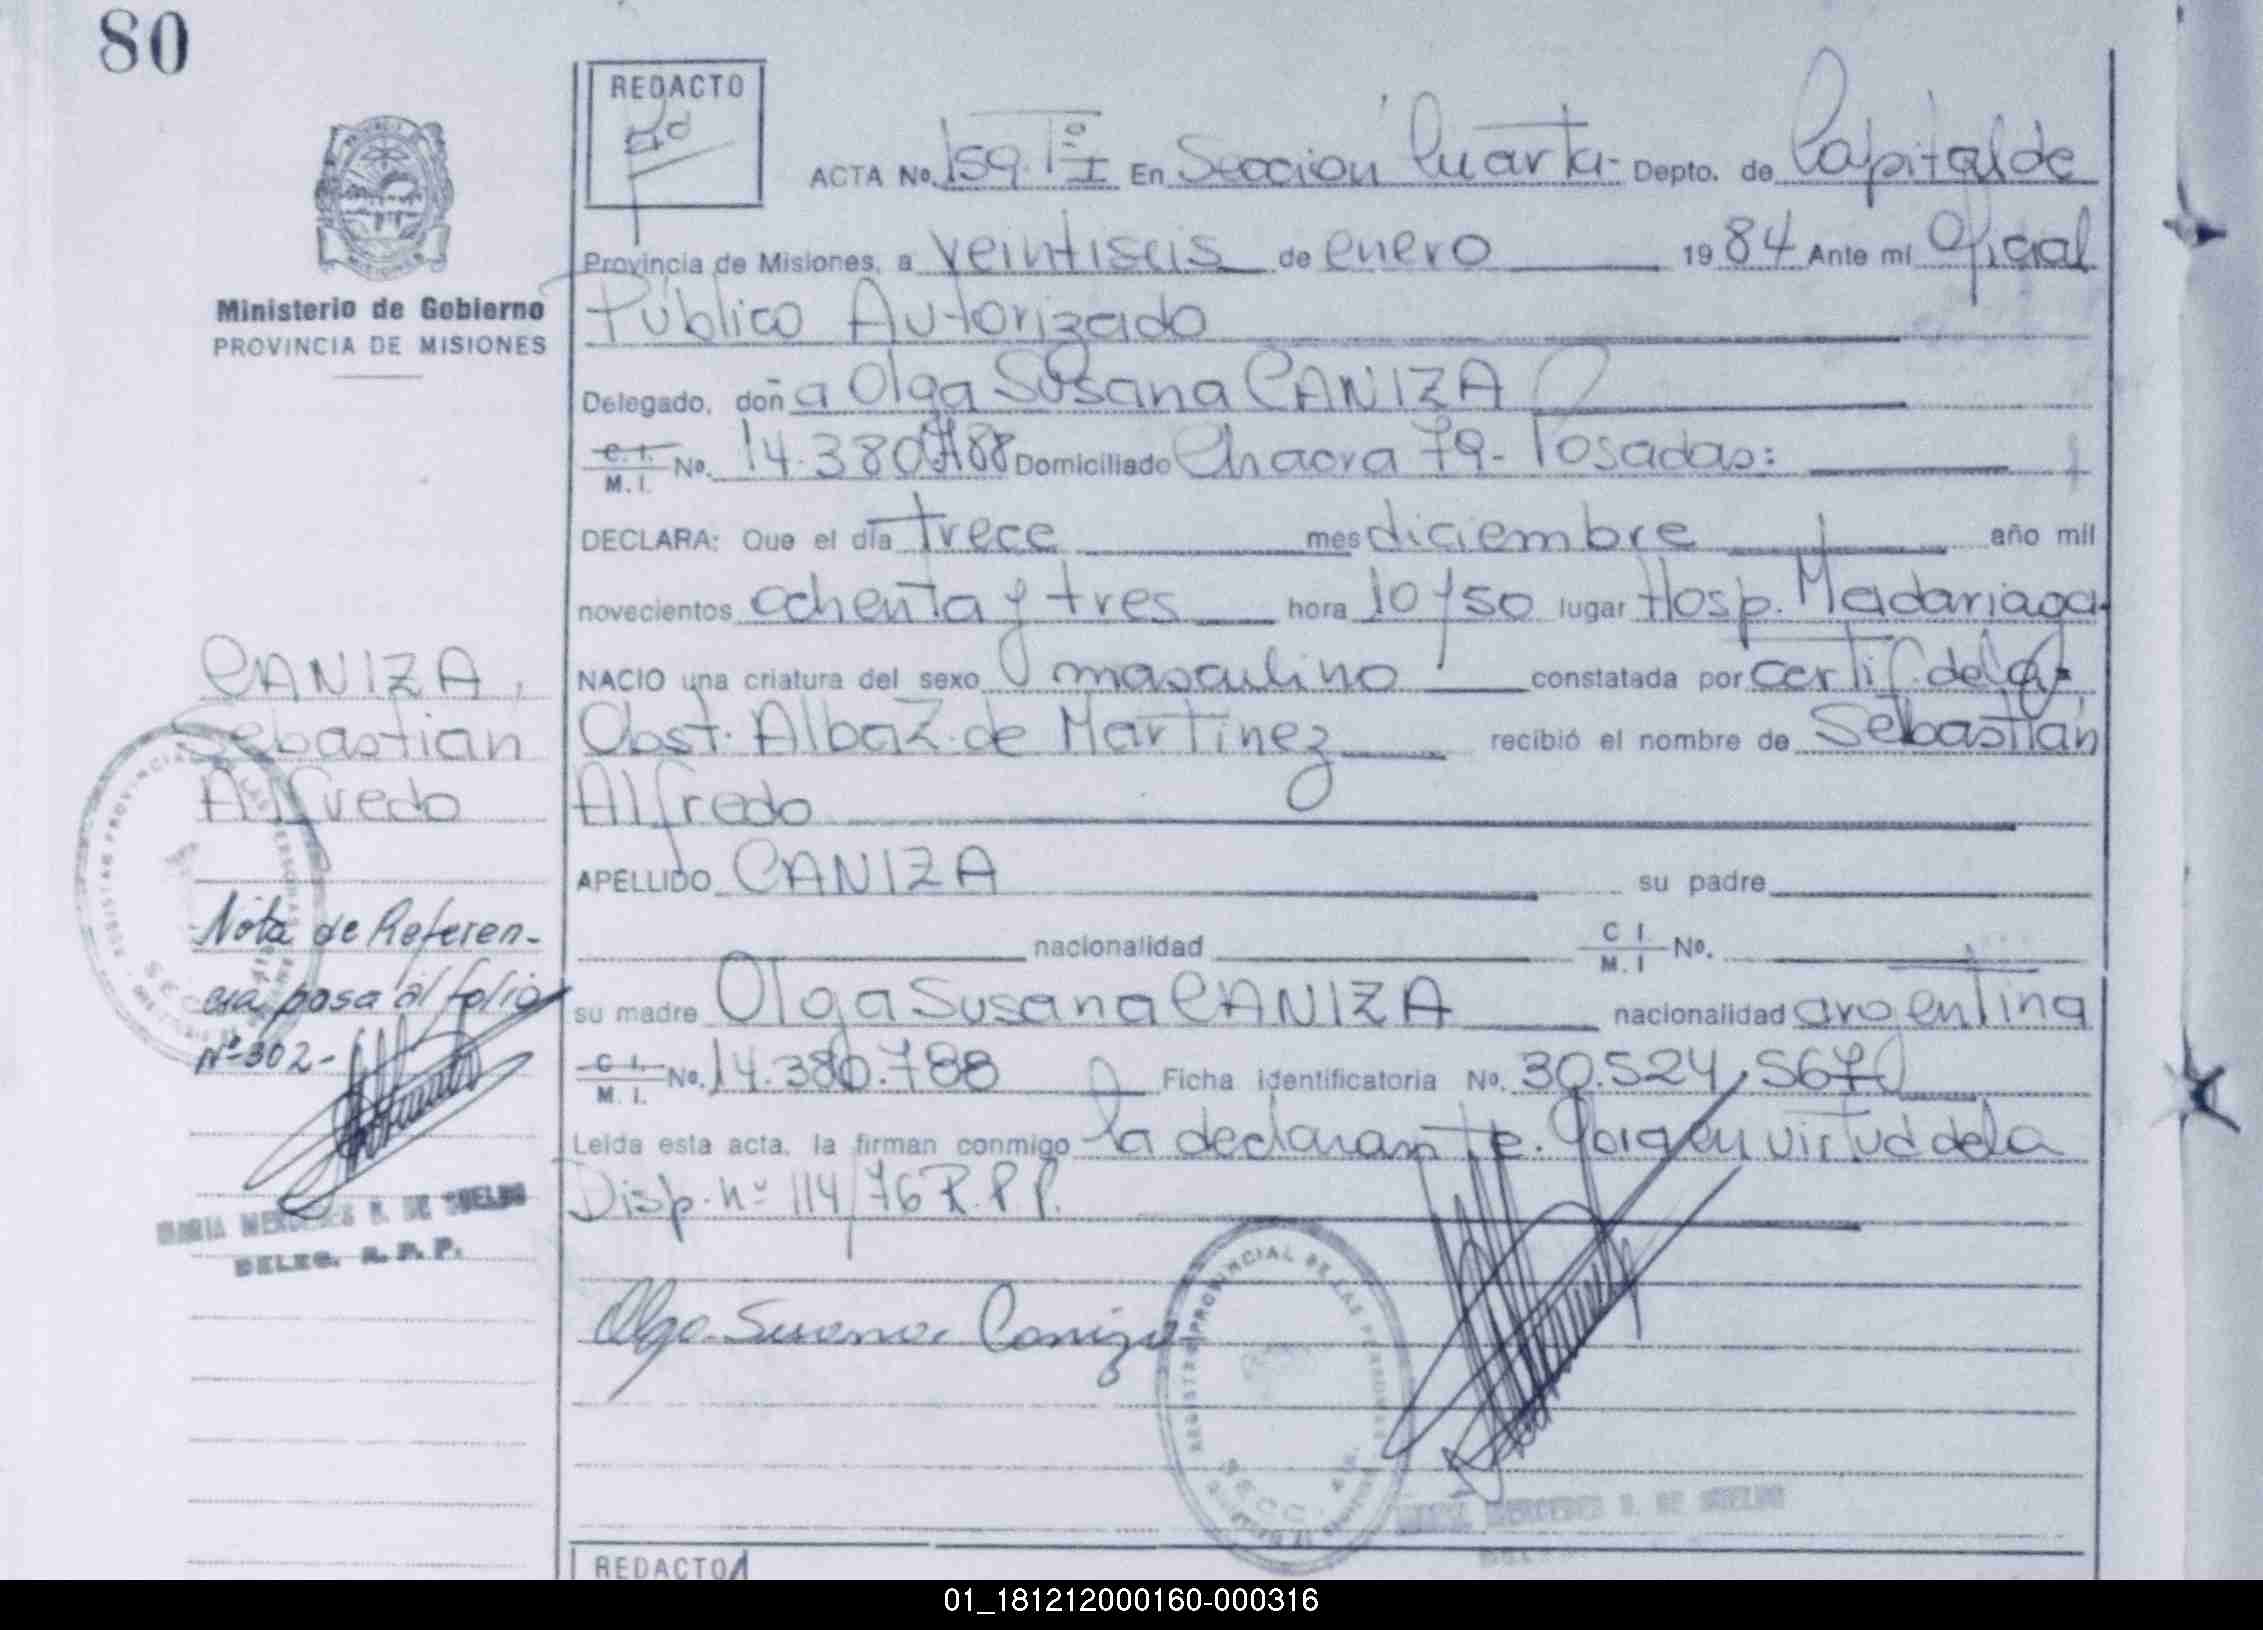 80
REDACTO
ACTA No. 159. Tº I En Sección Cuarta - Depto. de Capital de
Provincia de Misiones, a veintiseis de enero 1984 Ante mí Oficial
Ministerio de Gobierno
PROVINCIA DE MISIONES
Público Autorizado
Delegado, doña Olga Susana CANIZA
C. I. M. I. No. 14.380.788 Domiciliado Chacra 79 - Posadas:
DECLARA: Que el día trece mes diciembre año mil
novecientos ochenta y tres hora 10/50 lugar Hosp. Madariaga.
NACIO una criatura del sexo masculino constatada por certif. de la
Obst. Alba Z. de Martinez recibió el nombre de Sebastián
Alfredo
APELLIDO CANIZA su padre
nacionalidad C I. M. I No.
su madre Olga Susana CANIZA nacionalidad argentina
C I. M. I. No. 14.380.788 Ficha identificatoria No. 30.524.567
Leída esta acta, la firman conmigo la declarante. en virtud de la
Disp. nº 114/76 R.P.P.
Olga Susana Caniza
CANIZA,
Sebastián
Alfredo
Nota de Referen-
cia pasa al folio
Nº 302-
MARIA MERCEDES B. DE SUELDO
DELEG. R. P. P.
REGISTRO PROVINCIAL DE LAS PERSONAS
SECC. 4ta.
MARIA MERCEDES B. DE SUELDO
REDACTO
01_181212000160-000316